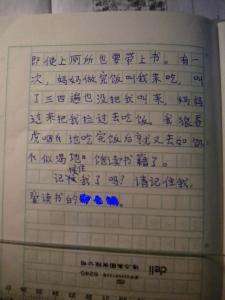 即使上厕所也要带上书。有一
次，妈妈做完饭叫我来吃，叫
了三四遍也没把我叫来，妈妈
过来把我拉过去吃饭。我狼吞
虎咽地吃完饭后，又去如饥
似渴地饱读书籍了。
记住我了吗？请记住我，
爱读书的
deli
6240